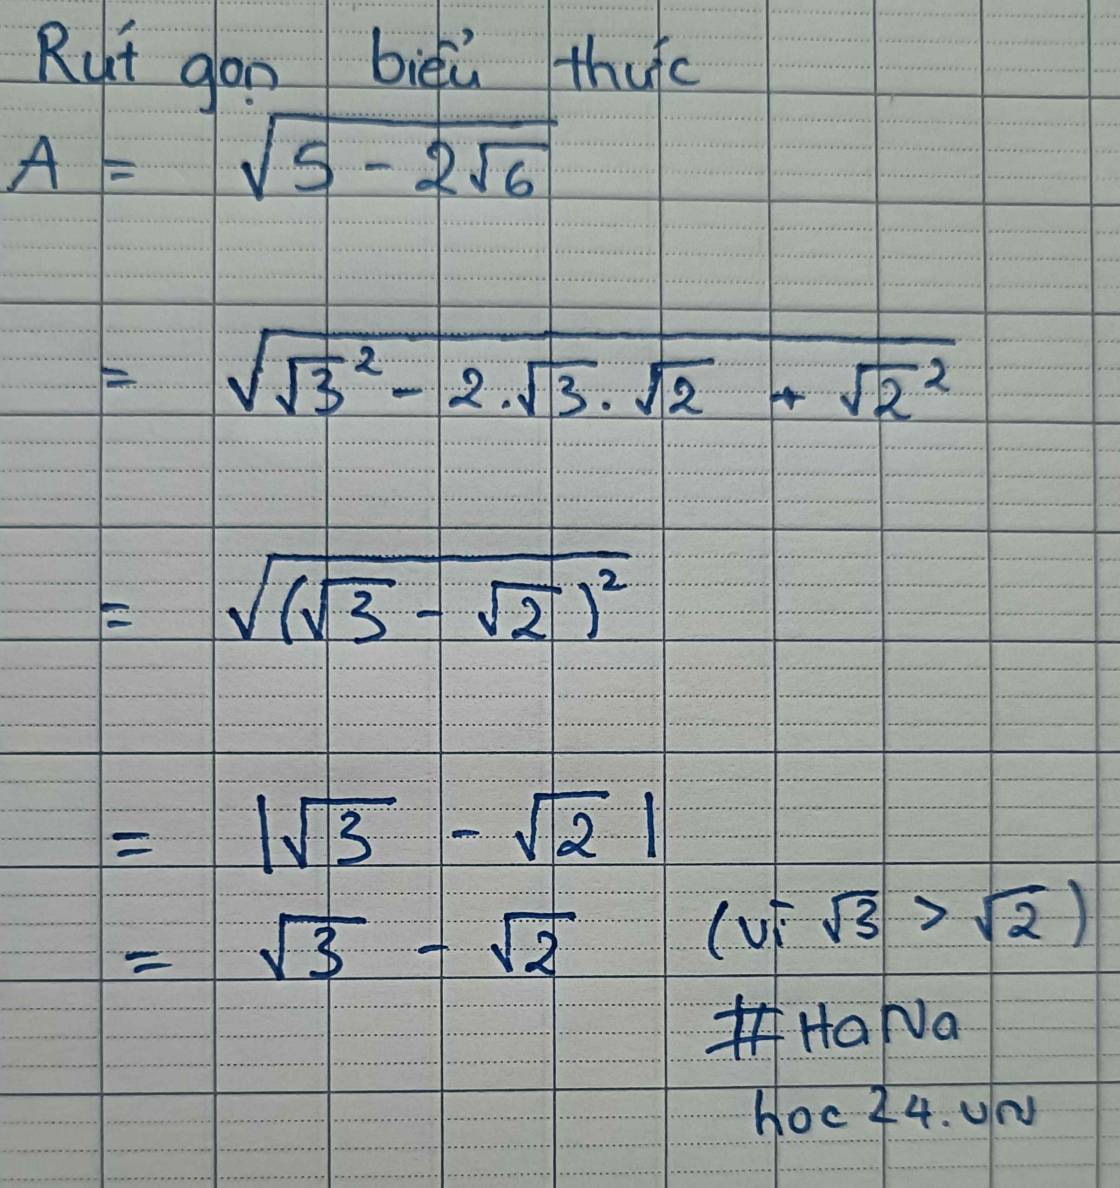 Rút gọn biểu thức
A = √(5 - 2√6)
= √(√3² - 2.√3.√2 + √2²)
= √((√3 - √2)²)
= |√3 - √2|
= √3 - √2 (vì √3 > √2)
# HaNa
hoc24.vn